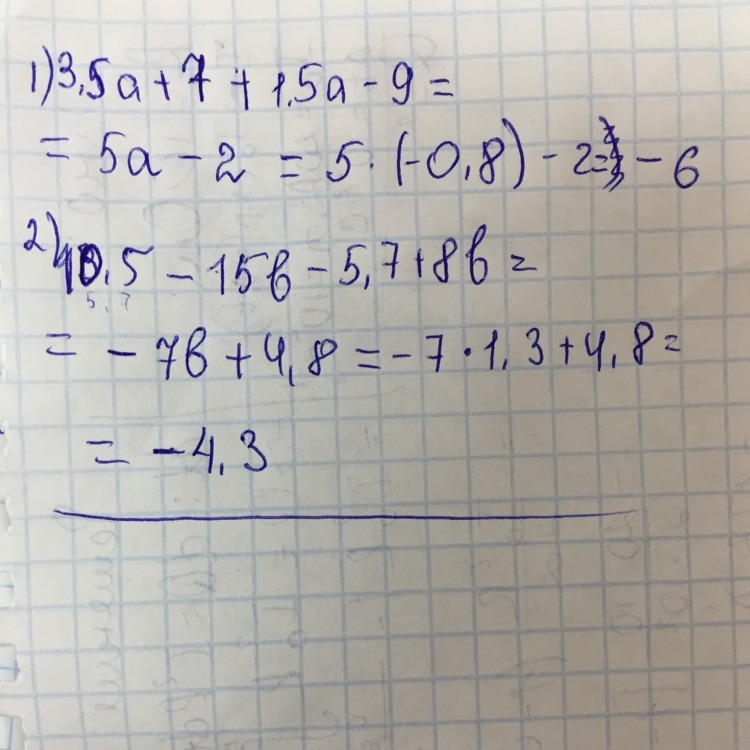 1) 3,5a + 7 + 1,5a - 9 =
= 5a - 2 = 5 · (-0,8) - 2 = - 6
2) 10,5 - 15b - 5,7 + 8b =
5,7
= - 7b + 4,8 = - 7 · 1,3 + 4,8 =
= - 4,3